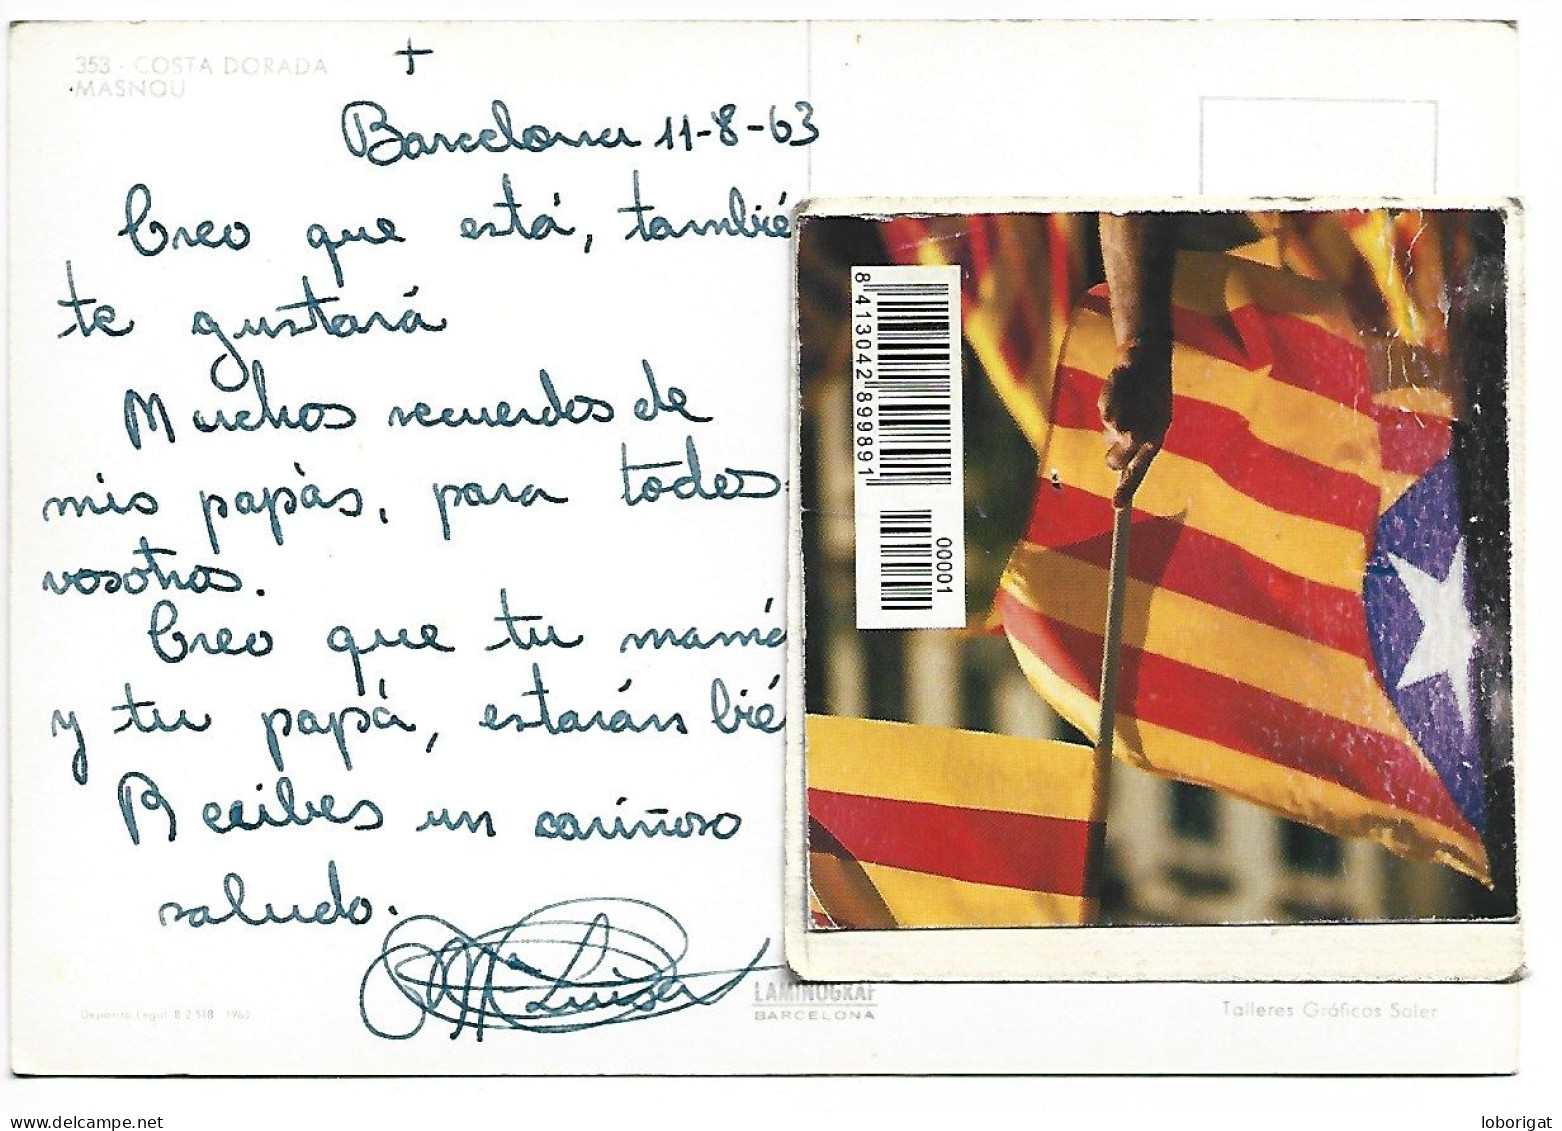 353 - COSTA DORADA
MASNOU
+
Barcelona 11-8-63
Creo que está, tambié
te gustará
Muchos recuerdos de
mis papàs, para todos
vosotros.
Creo que tu mamá
y tu papá, estaráns bié
Recibes un cariñoso
saludo.
Mª Luisa
8 413042 899891
00001
Depósito Legal B 2 518 - 1963
LAMINOGRAF
BARCELONA
Talleres Gráficos Soler
www.delcampe.net
loborigat